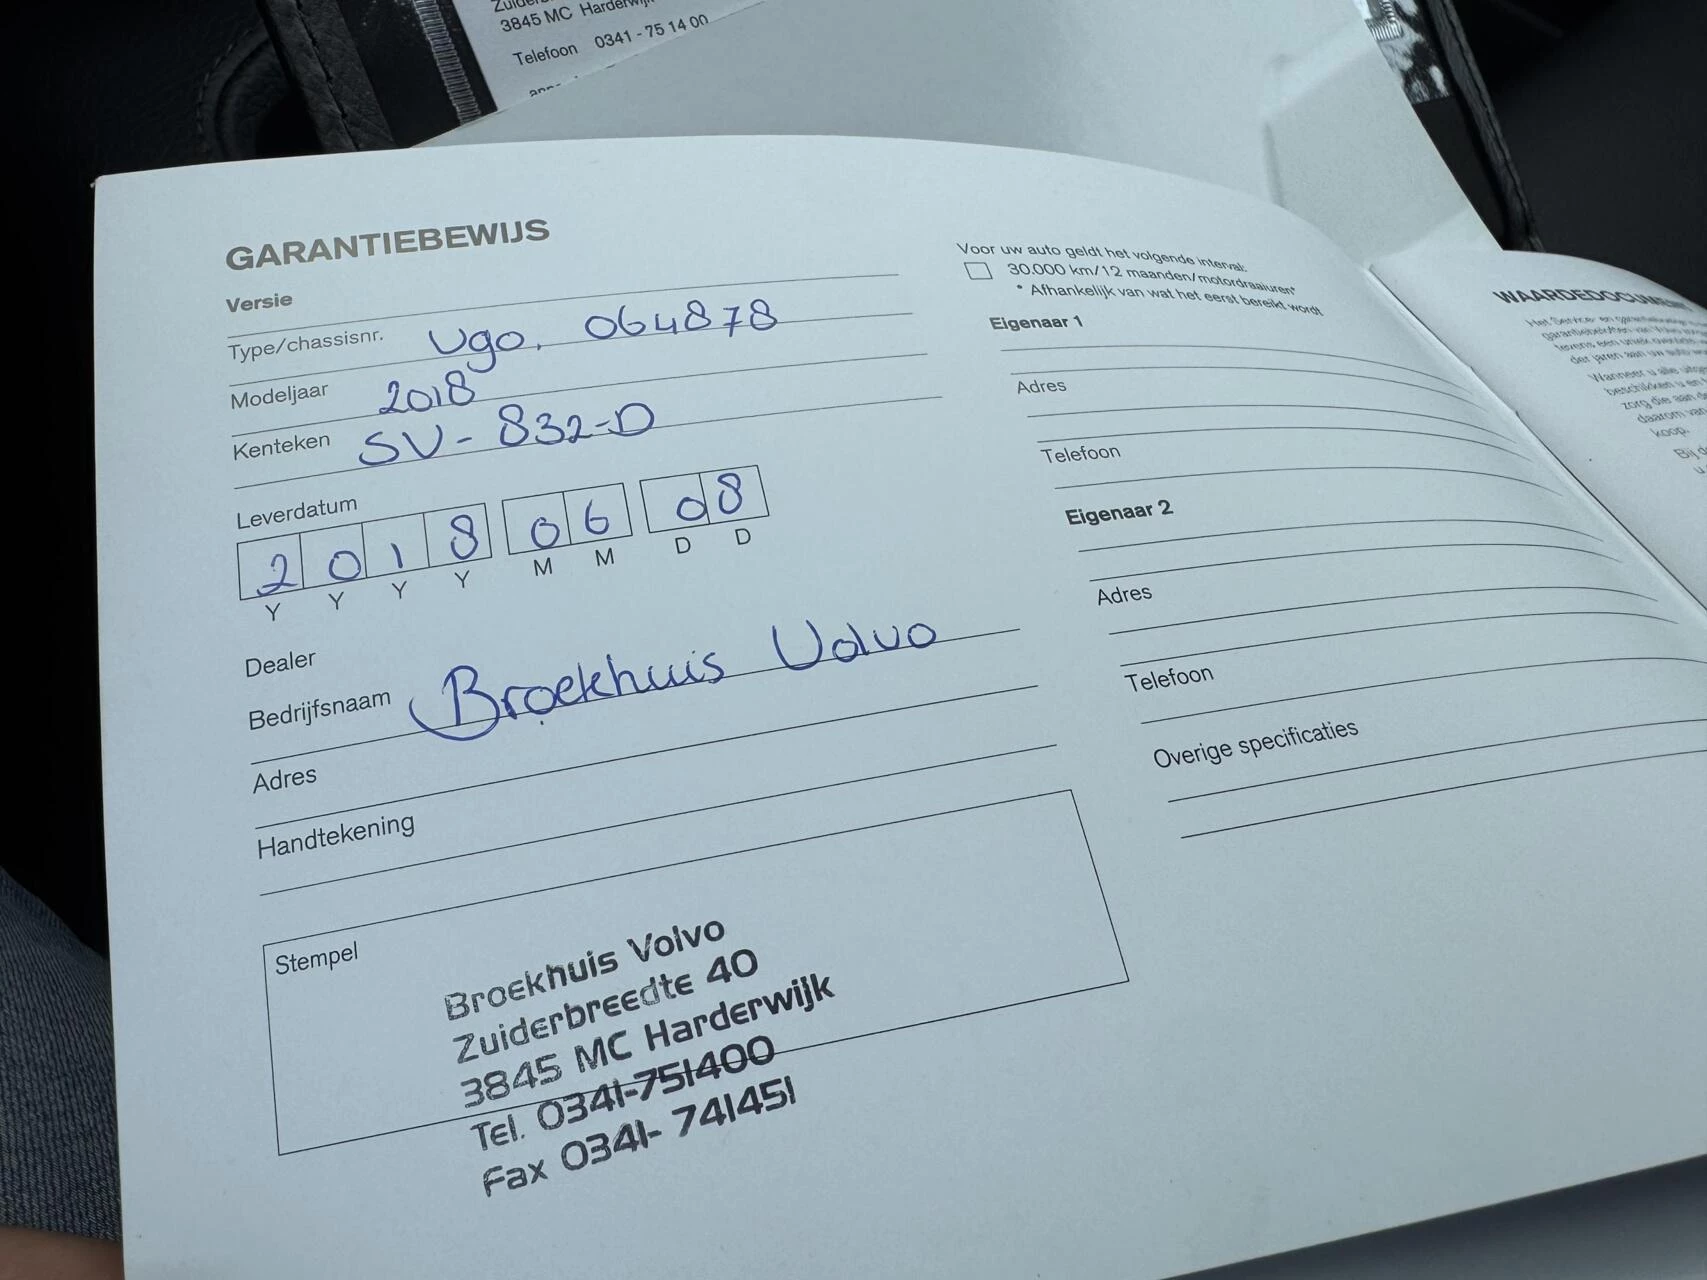 3845 MC Harderwijk
Telefoon 0341 - 75 14 00
GARANTIEBEWIJS
Versie
Type/chassisnr. Vgo. 064878
Modeljaar 2018
Kenteken SV-832-D
Leverdatum
2018 06 08
Y Y Y Y M M D D
Dealer
Bedrijfsnaam Broekhuis Volvo
Adres
Handtekening
Stempel
Broekhuis Volvo
Zuiderbreedte 40
3845 MC Harderwijk
Tel. 0341-751400
Fax 0341- 741451
Voor uw auto geldt het volgende interval:
30.000 km/12 maanden/motordraaiuren*
* Afhankelijk van wat het eerst bereikt wordt
Eigenaar 1
Adres
Telefoon
Eigenaar 2
Adres
Telefoon
Overige specificaties
Het Service- en
der jaren aan uw auto
Wanneer u alle
beschikken u
zorg die aan
daarom van
koop.